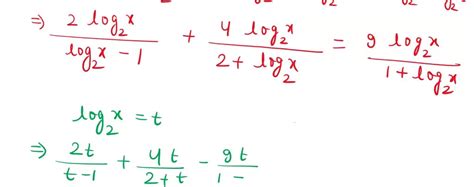 ⇒ 2 log₂x / (log₂x - 1) + 4 log₂x / (2 + log₂x) = 9 log₂x / (1 + log₂x)
log₂x = t
⇒ 2t / (t-1) + 4t / (2+t) - 9t / 1 -